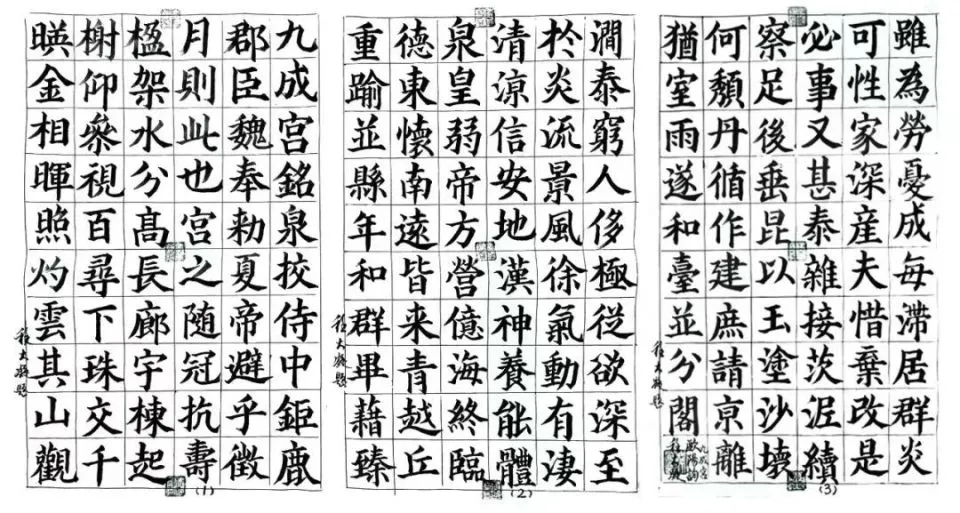 九成宮銘泉挍侍中鉅鹿
郡臣魏奉勑夏帝避乎徵
月則此也宮之随冠抗壽
楹架水分髙長廊宇棟起
榭仰叅視百尋下珠交千
暎金相暉照灼雲其山觀
(1)
澗泰窮人侈極從欲深至
扵炎流景風徐氣動有淒
清涼信安地漢神養能體
泉皇弱帝方營億海終臨
德東懷南遠皆来青越丘
重踰並縣年和群畢藉臻
(2)
雖為勞憂成每滯居群炎
可性家深産夫惜棄改是
必事又甚泰雜接茨泥續
察足後垂昆以玉塗沙壞
何頹丹循作建庶請京離
猶室雨遂和臺並分閣
九成宮
歐陽詢
(3)